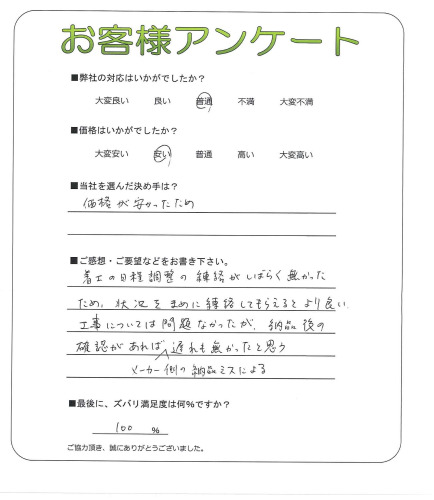 お客様アンケート
■弊社の対応はいかがでしたか？
大変良い 良い 普通 不満 大変不満
■価格はいかがでしたか？
大変安い 安い 普通 高い 大変高い
■当社を選んだ決め手は？
価格が安かったため
■ご感想・ご要望などをお書き下さい。
着工の日程調整の練絡がしばらく無かった
ため、状況をまめに練絡してもらえるとより良い
工事については問題なかったが、納品後の
確認があれば遅れも無かったと思う
メーカー側の納品ミスによる
■最後に、ズバリ満足度は何%ですか？
100 %
ご協力頂き、誠にありがとうございました。